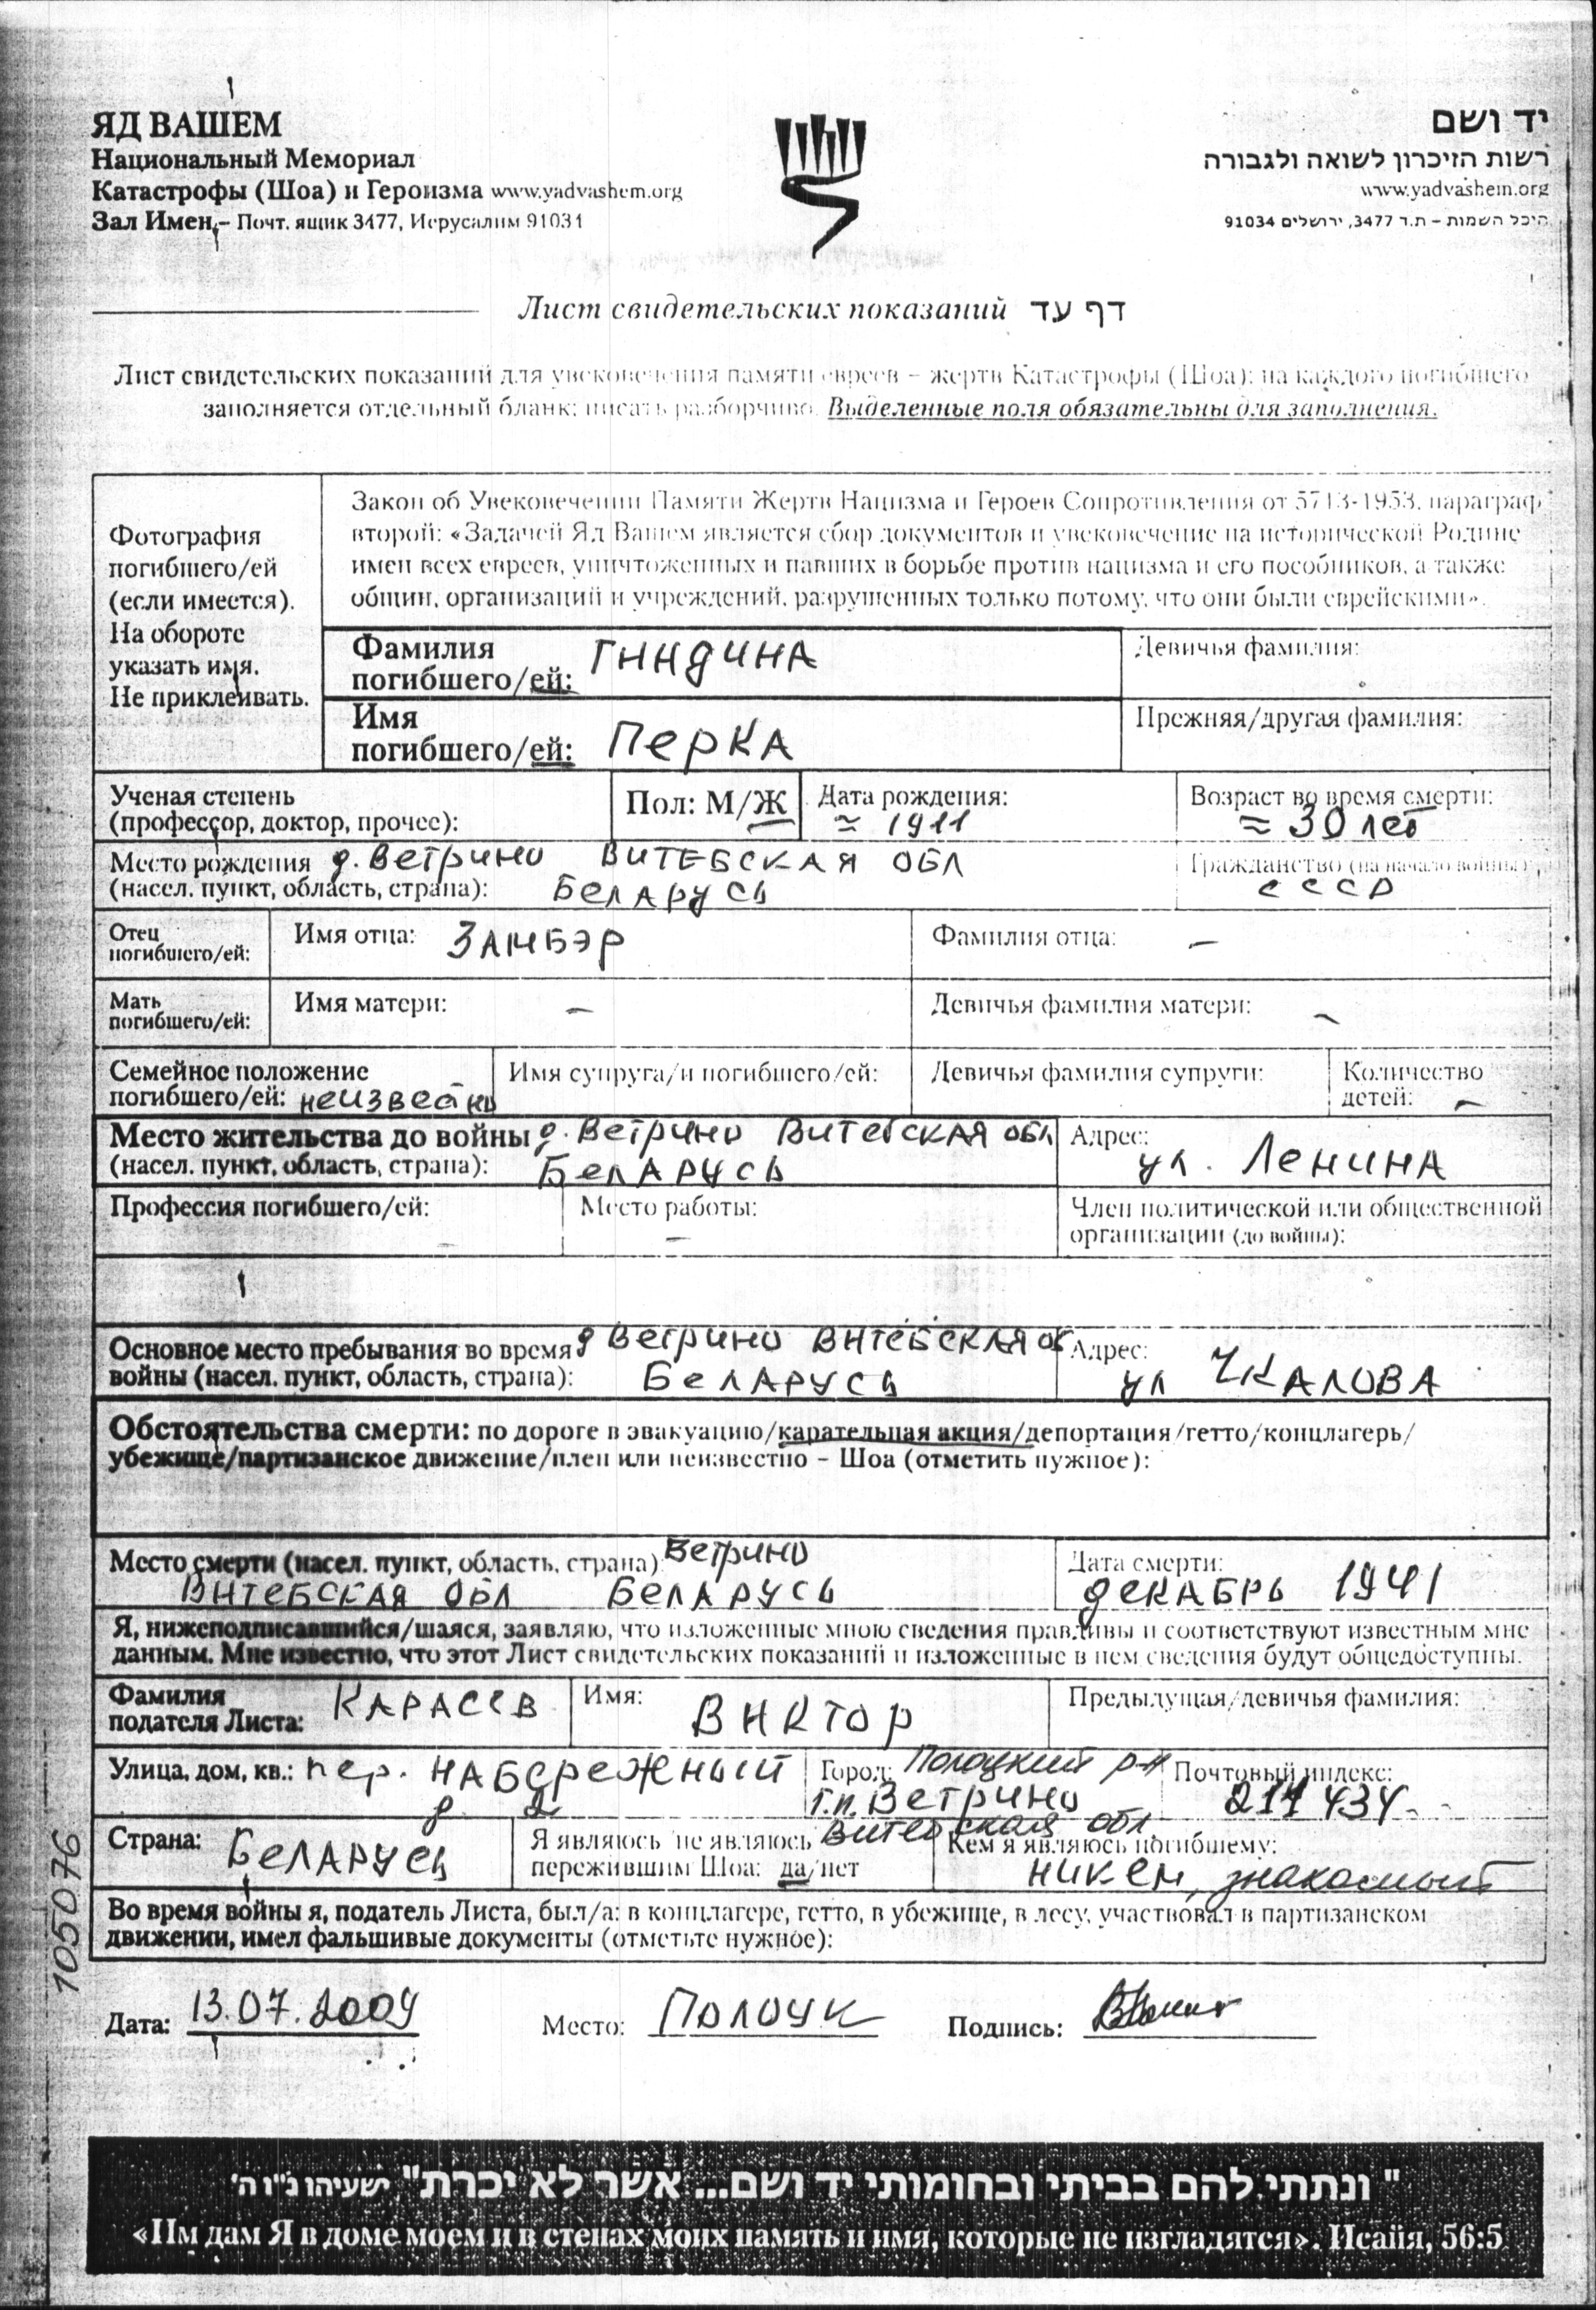 ЯД ВАШЕМ
Национальный Мемориал
Катастрофы (Шоа) и Героизма www.yadvashem.org
Зал Имен – Почт. ящик 3477, Иерусалим 91034
יד ושם
רשות הזיכרון לשואה ולגבורה
www.yadvashem.org
היכל השמות – ת.ד 3477, ירושלים 91034
Лист свидетельских показаний דף עד
Лист свидетельских показаний для увековечения памяти евреев – жертв Катастрофы (Шоа); на каждого погибшего
заполняется отдельный бланк; писать разборчиво. Выделенные поля обязательны для заполнения.
Фотография
погибшего/ей
(если имеется).
На обороте
указать имя.
Не приклеивать.
Закон об Увековечении Памяти Жертв Нацизма и Героев Сопротивления от 5713-1953, параграф
второй: «Задачей Яд Вашем является сбор документов и увековечение на исторической Родине
имен всех евреев, уничтоженных и павших в борьбе против нацизма и его пособников, а также
общин, организаций и учреждений, разрушенных только потому, что они были еврейскими».
Фамилия
погибшего/ей: ГИНДИНА
Девичья фамилия:
Имя
погибшего/ей: ПЕРКА
Прежняя/другая фамилия:
Ученая степень
(профессор, доктор, прочее):
Пол: М/Ж
Дата рождения:
≈ 1911
Возраст во время смерти:
≈ 30 лет
Место рождения д. Ветрино ВИТЕБСКАЯ ОБЛ
(насел. пункт, область, страна): БЕЛАРУСЬ
Гражданство (на начало войны):
СССР
Отец
погибшего/ей:
Имя отца: ЗАМБЭР
Фамилия отца: –
Мать
погибшего/ей:
Имя матери: –
Девичья фамилия матери: –
Семейное положение
погибшего/ей: неизвестно
Имя супруга/и погибшего/ей:
Девичья фамилия супруги:
Количество
детей: –
Место жительства до войны д. Ветрино ВИТЕБСКАЯ ОБЛ
(насел. пункт, область, страна): БЕЛАРУСЬ
Адрес:
ул. ЛЕНИНА
Профессия погибшего/ей: –
Место работы: –
Член политической или общественной
организации (до войны):
Основное место пребывания во время д Ветрино ВИТЕБСКАЯ ОБ
войны (насел. пункт, область, страна): БЕЛАРУСЬ
Адрес:
ул ЧКАЛОВА
Обстоятельства смерти: по дороге в эвакуацию/карательная акция/депортация/гетто/концлагерь/
убежище/партизанское движение/плен или неизвестно – Шоа (отметить нужное):
Место смерти (насел. пункт, область, страна) Ветрино
ВИТЕБСКАЯ ОБЛ БЕЛАРУСЬ
Дата смерти:
ДЕКАБРЬ 1941
Я, нижеподписавшийся/шаяся, заявляю, что изложенные мною сведения правдивы и соответствуют известным мне
данным. Мне известно, что этот Лист свидетельских показаний и изложенные в нем сведения будут общедоступны.
Фамилия
подателя Листа: КАРАСЕВ
Имя: ВИКТОР
Предыдущая/девичья фамилия:
Улица, дом, кв.: пер. НАБЕРЕЖНЫЙ
д. 2
Город: Полоцкий р-н
г.п. Ветрино
Витебская обл
Почтовый индекс:
211434
Страна: БЕЛАРУСЬ
Я являюсь/не являюсь
пережившим Шоа: да/нет
Кем я являюсь погибшему:
никем, знакомый
Во время войны я, податель Листа, был/а: в концлагере, гетто, в убежище, в лесу, участвовал в партизанском
движении, имел фальшивые документы (отметьте нужное):
105076
Дата: 13.07.2009 Место: ПОЛОЦК Подпись:
"ונתתי להם בביתי ובחומותי יד ושם... אשר לא יכרת" ישעיהו נ"ו ה'
«Им дам Я в доме моем и в стенах моих память и имя, которые не изгладятся». Исайя, 56:5